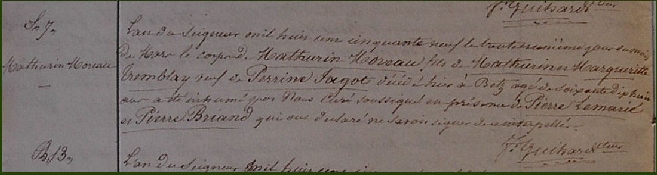 F. Guihard
S. 7.
L'an du Seigneur mil huit cent cinquante neuf le trente unième jour du mois
Mathurin Moreau
de Mars le corps de Mathurin Moreau fils de Mathurin et Marguerite
Tremblay veuf de Perrine Jagot décédé hier à Betz âgé de soixante dix huit
ans a été inhumé par Nous Curé soussigné en présence de Pierre Lemarié
et Pierre Briand qui ont déclaré ne savoir signer de ce interpellés.
F. Guihard
B. 13.
L'an du Seigneur mil huit cent